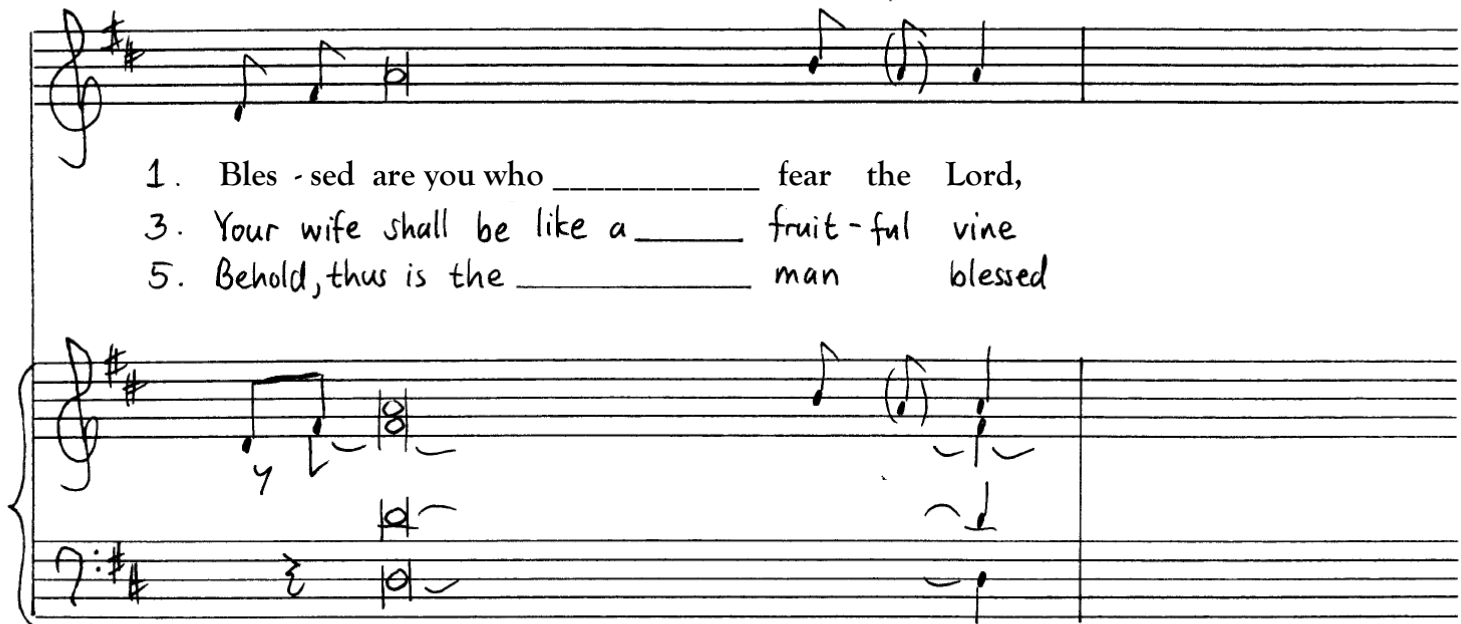 1. Bles - sed are you who ____________ fear the Lord,
3. Your wife shall be like a ______ fruit - ful vine
5. Behold, thus is the ____________ man blessed